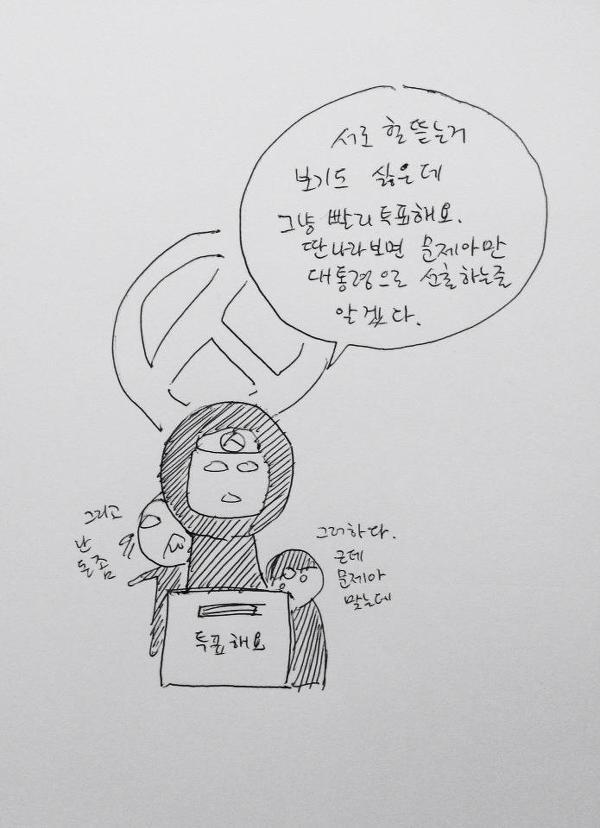 서로 헐뜯는거
보기도 싫은데
그냥 빨리 투표해요.
딴나라보면 문제아만
대통령으로 선출하는줄
알겠다.
그리고
난
돈좀
그러하다.
근데
문제아
투표해요